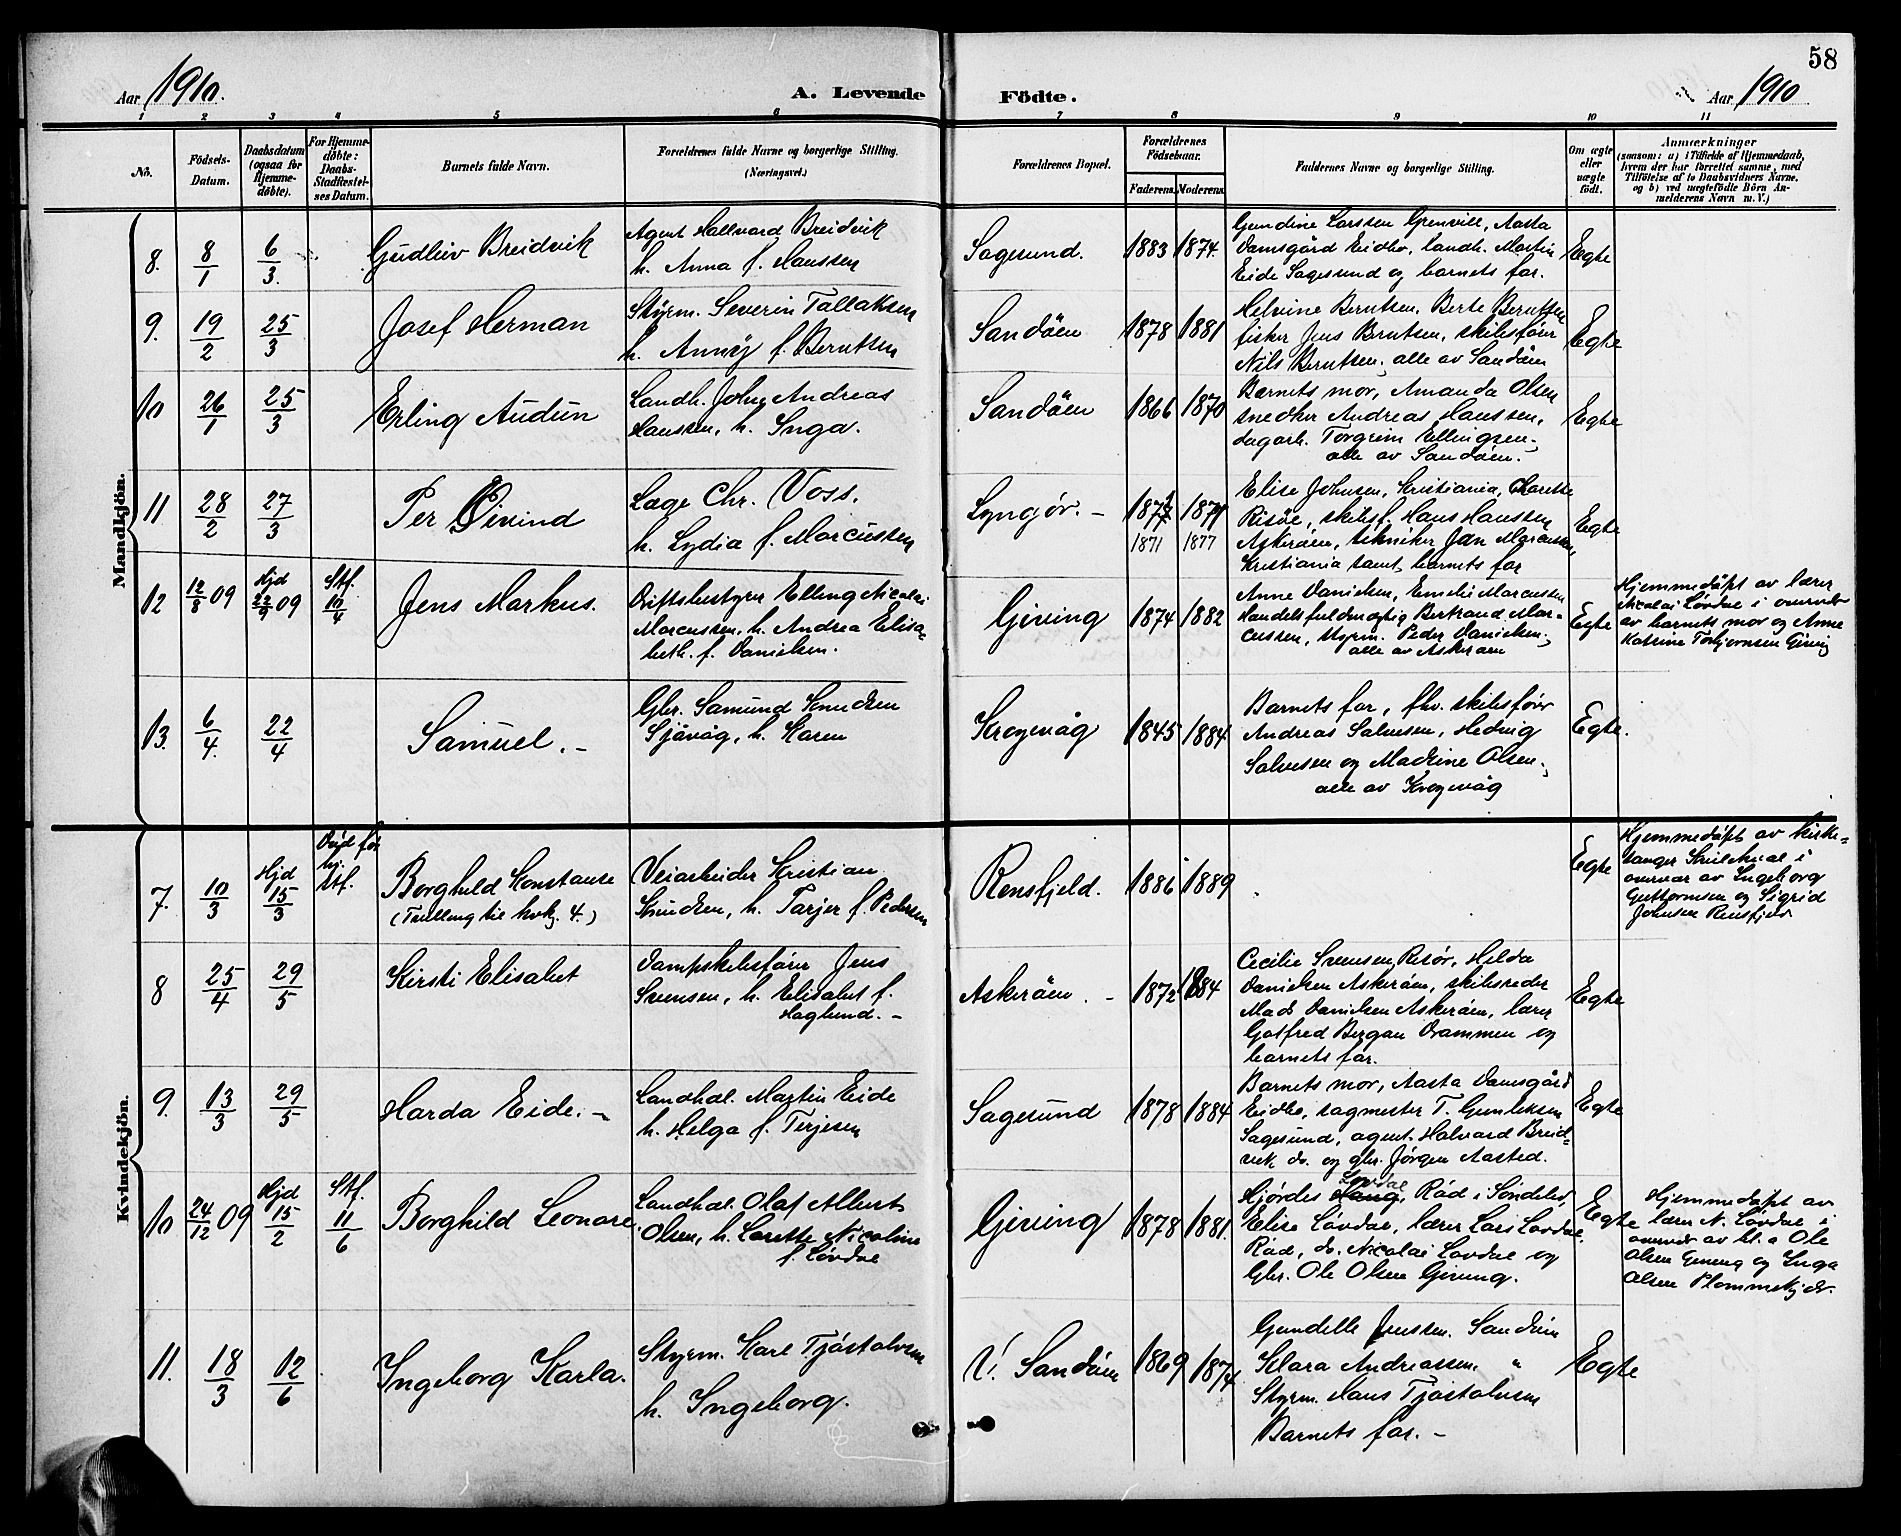 58
Aar 1910.
A. Levende Födte.
Aar 1910
1 2 3 4 5 6 7 8 9 10 11
No.
Födsels-Datum.
Daabsdatum (ogsaa for Hjemme-döbte).
For Hjemme-döbte: Daabs-Stadfæstel-ses Datum.
Barnets fulde Navn.
Forældrenes fulde Navne og borgerlige Stilling.
(Næringsvei.)
Forældrenes Bopæl.
Forældrenes Födselsaar.
Faderens. Moderens.
Faddernes Navne og borgerlige Stilling.
Om ægte eller uægte födt.
Anmærkninger
(saasom: a) i Tilfælde af Hjemmedaab,
hvem der har forrettet samme, med
Tilföielse af to Daabsvidners Navne,
og b) ved uægtefödte Börn An-
melderens Navn m.V.)
Mandkjön.
8. 8/1 6/3. Gudleiv Breidvik
Agent Hallvard Breidvik
h. Anna f. Hanssen
Sagesund. 1883 1874.
Gundine Larssen Grenvill, Aasta
Damsgård Eidbo, landh. Martin
Eide Sagesund og barnets far.
Egte
9. 19/2 25/3 Josef Herman
Styrm. Severin Tallaksen
h. Anny f. Berntsen
Sandöen 1878 1881
Helvine Berntsen, Berte Berntsen
fisker Jens Berntsen, skibsfører
Nils Berntsen, alle av Sandöen
Egte
10 26/1 25/3 Erling Audun
Landh. John Andreas
Hanssen, h. Inga.
Sandöen 1866 1870
Barnets mor, Amanda Olsen
snedker Andreas Hanssen,
dagarb. Torgrim Ellingsen,
alle av Sandöen.
Egte
11 28/2 27/3 Per Øivind
Læge Chr. Voss.
h. Lydia f. Marcussen
Lyngør. – 1871 1877
Elise Johnsen, Kristiania,
Risöe, skibsf. Hans Hanssen
Askeröen, tekniker Jan Marcussen,
Kristiania samt barnets far
Egte
12 12/8 09 Hjd 09 Stf. 10/4 Jens Markus.
Driftsbestyrer Elling Nicolai
Marcussen, h. Andrea Elisa-
beth. f. Danielsen.
Giving 1874 1882
Anne Danielsen, Emelie Marcussen
Handelsfuldmegtig Bertrand Mar-
cussen, styrm. Peder Danielsen,
alle av Askeröen
Egte
Hjemmedöpt av lærer
Nicolai Lövdal i overvær
av barnets mor og Anne
Katrine Torbjørnsen Giving
13. 6/4. 22/4 Samuel. –
Gbr. Samund Knudsen
Sjåvåg, h. Karen
Krogevåg 1845 1884
Barnets far, fhv. skibsfører
Andreas Salvesen, Hedvig
Salvesen og Madrine Olsen,
alle av Krogevåg
Egte.
Kvindekjön.
7. 10/3 Hjd 15/3 Död før hj. stf. Borghild Konstanse
(Tvilling til kvkj. 4.)
Veiarbeider Kristian
Knudsen, h. Tarjer f. Pedersen
Rensfjeld. 1886 1889
Egte
Hjemmedöpt av kirke-
sanger i
overvær av Ingeborg
Guttormsen og Sigrid
Johnsen Rensfjeld
8 25/4 29/5 Kirsti Elisabet
Dampskibsfører Jens
Svensen, h. Elisabet f.
Haglund. –
Askeröen. – 1872 1884
Cecilie Svensen, Risör, Helda
Danielsen Askeröen, skibsreder
Mads Danielsen Askeröen, lærer
Gotfred Bergan Drammen og
barnets far.
Egte
9. 13/3 29/5 Harda Eide. –
Landhdl. Martin Eide
h. Helga f. Terjesen
Sagesund 1878 1884
Barnets mor, Aasta Damsgård
Eidbo, sagmester T. Gunleksen
Sagesund, agent Halvard Breid-
vik do. og gbr. Jørgen Aasted.
Egte
10 24/12 09 Hjd 15/2 Stf. 11/6 Borghild Leonore
Landhdl. Olaf Albert
Olsen, h. Lorette Nicoline
f. Lövdal
Giving 1878 1881.
Hjørdes Lövdal Röd i Söndeled,
Elise Lövdal, lærer Lars Lövdal
Röd, do. Nicolai Lövdal og
Gbr. Ole Olsen Giving.
Egte
Hjemmedöpt av
lærer N. Lövdal i
overvær av bl. a Ole
Olsen Giving og Inga
Olsen Plommekjer.
11. 18/3 12/6 Ingeborg Karla.
Styrm. Karl Tjøstolvsen
h. Ingeborg.
V. Sandöen 1869 1874
Gundelle Jenssen. Sandöen
Klara Andreassen, "
Styrm. Hans Tjøstolvsen
Barnets far. –
Egte